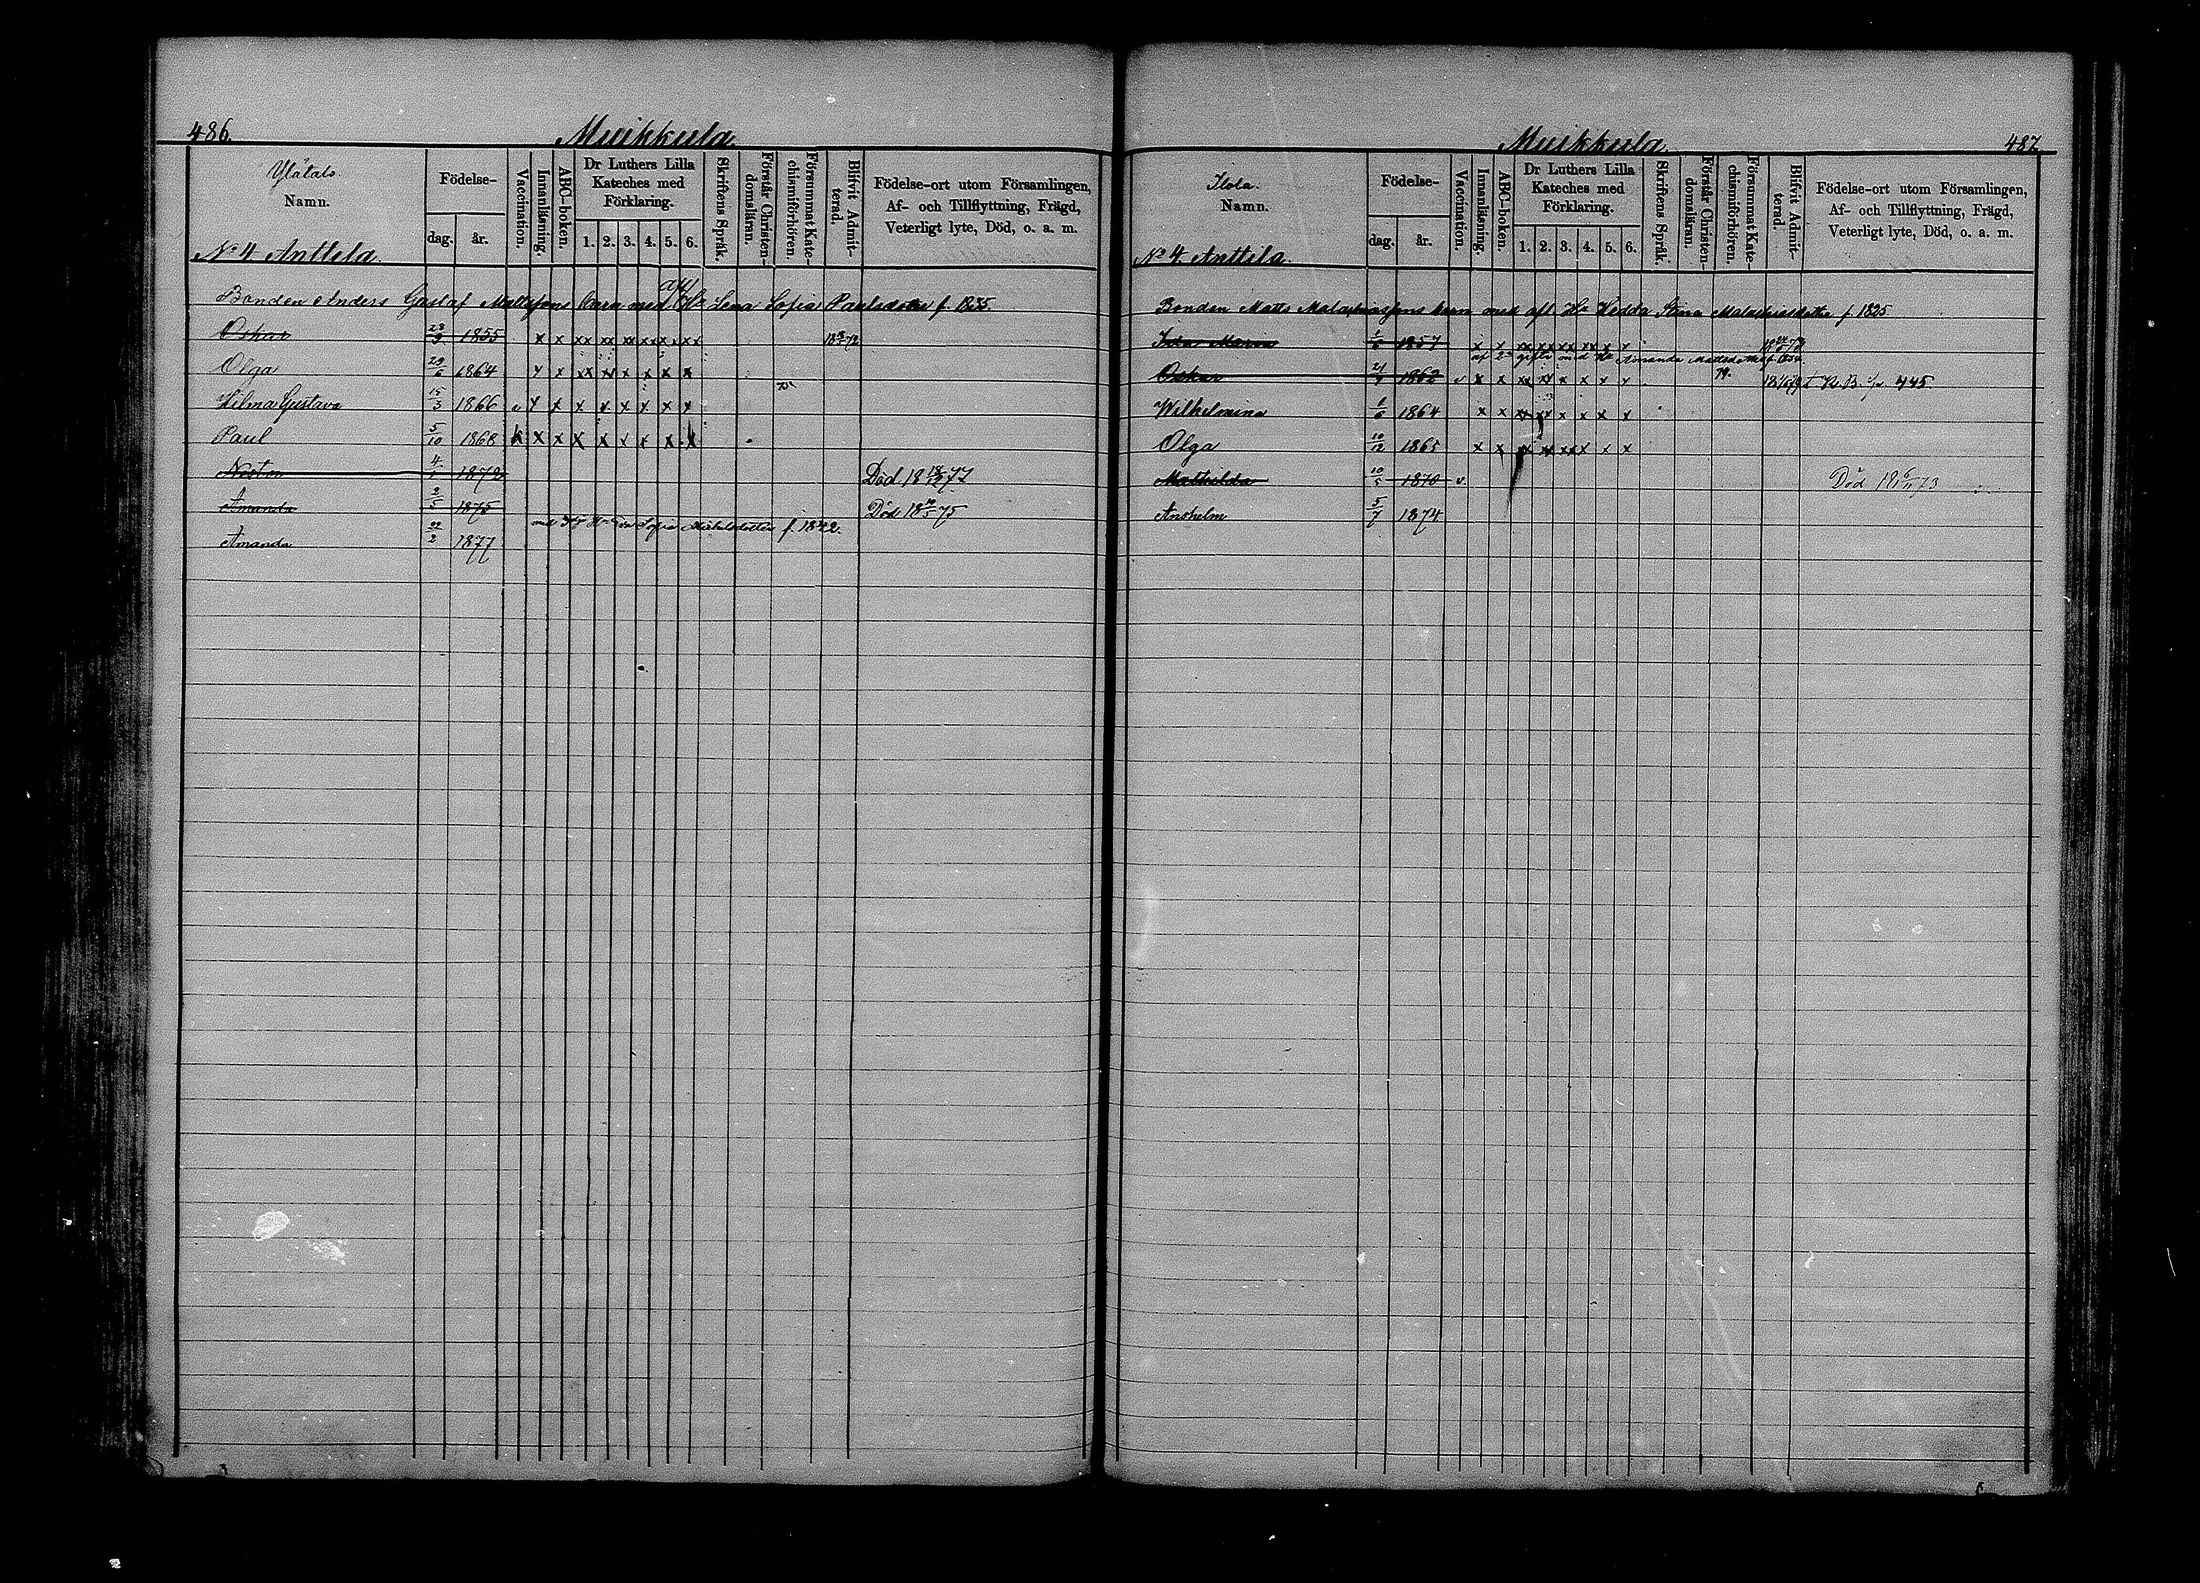 486.
Muikkula.
Ylätalo.
Namn.
Födelse-
dag. år.
Vaccination.
Innanläsning.
ABC-boken.
Dr Luthers Lilla Kateches med Förklaring.
1. 2. 3. 4. 5. 6.
Skriftens Språk.
Förstår Christendomsläran.
Försummat Katechismiförhören.
Blifvit Admitterad.
Födelse-ort utom Församlingen, Af- och Tillflyttning, Frägd, Veterligt lyte, Död, o. a. m.
No 4 Anttila.
Bonden Anders Gustaf Mattssons barn med afl. Ha Lena Sofia Paulsdotter f. 1835.
Oskar 23/9 1855 x x xx xx xx xx x xx
Olga 29/6 1864 x x xx x x x x x
Hilma Gustava 15/3 1866 v x x x x x x x x
Paul 5/10 1868 x x x x x x x x
Nestor 4/1 1872 Död 18 77
Amanda 2/5 1875 Död 18 75
Sofia Michelsdotter f. 1842.
Amanda 22/2 1877
487.
Muikkula.
Ilola.
Namn.
Födelse-
dag. år.
Vaccination.
Innanläsning.
ABC-boken.
Dr Luthers Lilla Kateches med Förklaring.
1. 2. 3. 4. 5. 6.
Skriftens Språk.
Förstår Christendomsläran.
Försummat Katechismiförhören.
Blifvit Admitterad.
Födelse-ort utom Församlingen, Af- och Tillflyttning, Frägd, Veterligt lyte, Död, o. a. m.
No 4. Anttila.
Bonden Matts Malachiassons barn med afl. Ha Hedda Stina Malachiasdotter f. 1825
Ida Maria 1857 x x xx xx xx xx x x
af 2a gifte med Ha Amanda Mattsdotter
Oskar 21 1862 v x x xx xx x x x x K. B. 445
Wilhelmina 1/6 1864 x x xx xx x x x x
Olga 10/12 1865 x x xx xx xx x x x
Mathilda 10/5 1870 v. Död 18 6/11 73
Anshelm 5/7 1874